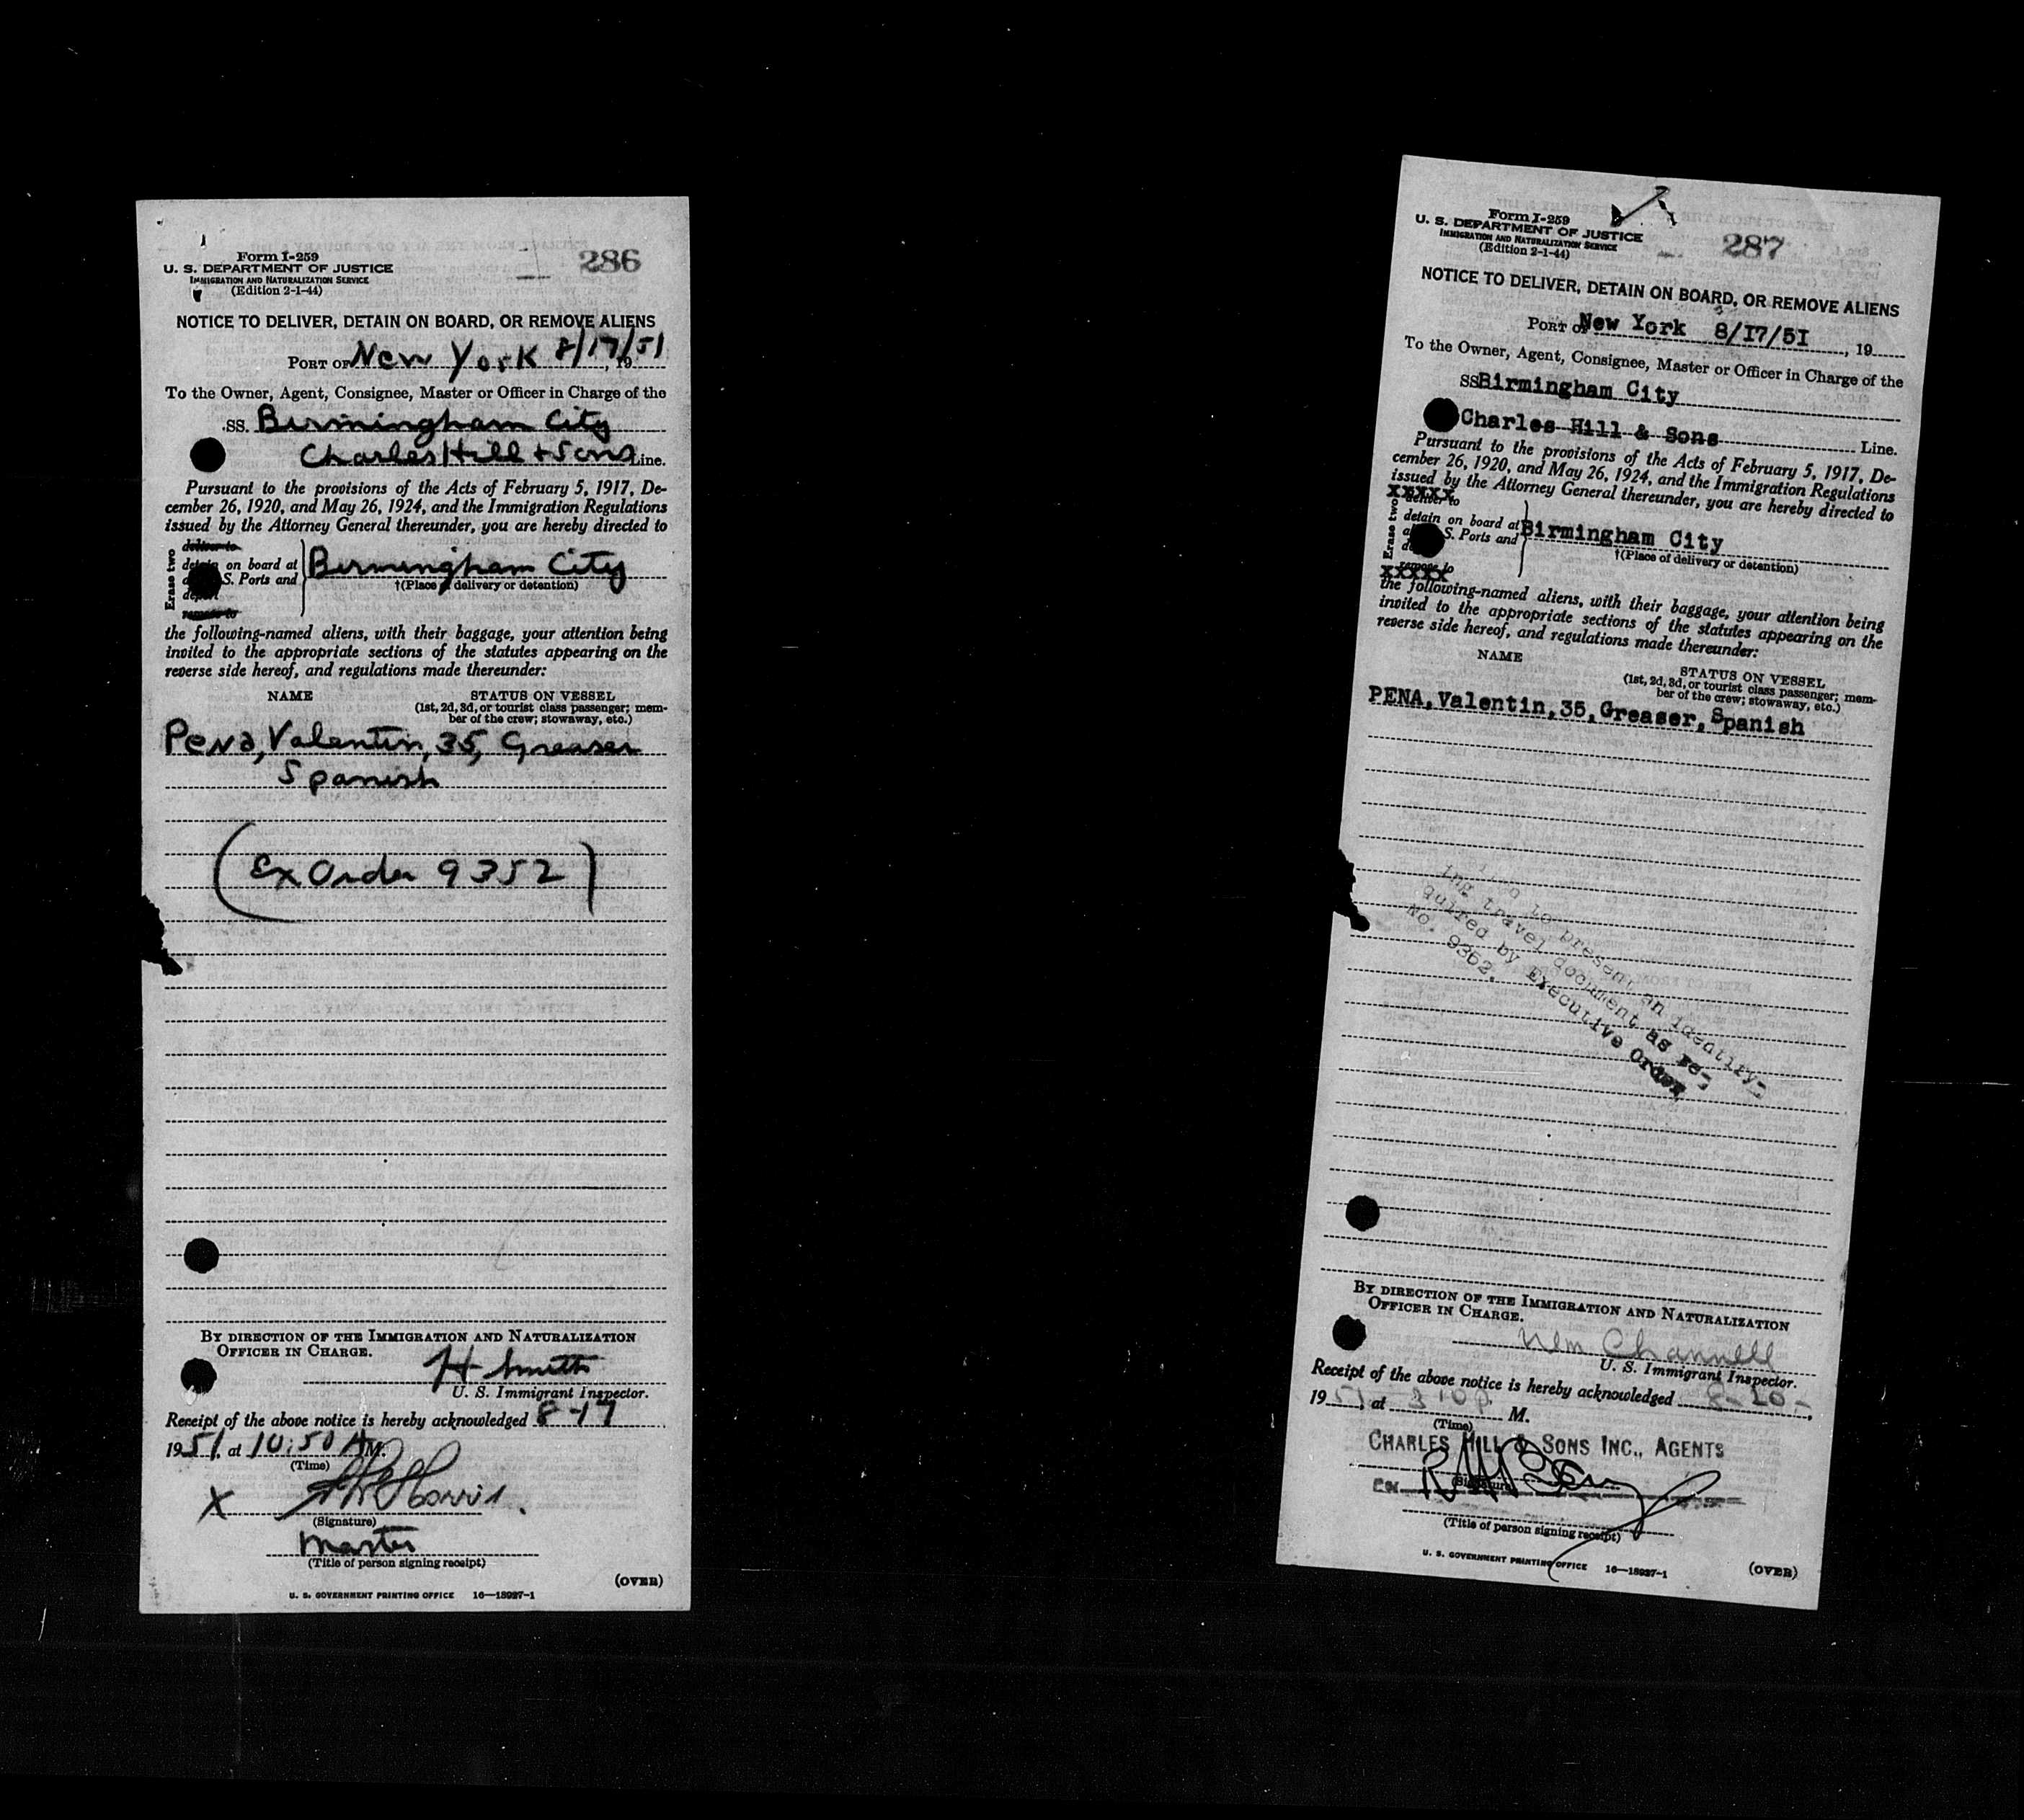 Form I-259
U. S. DEPARTMENT OF JUSTICE
IMMIGRATION AND NATURALIZATION SERVICE
(Edition 2-1-44)
286
NOTICE TO DELIVER, DETAIN ON BOARD, OR REMOVE ALIENS
PORT OF New York 8/17/51, 19
To the Owner, Agent, Consignee, Master or Officer in Charge of the
SS. Birmingham City
Charles Hill & Sons Line.
Pursuant to the provisions of the Acts of February 5, 1917, De-
cember 26, 1920, and May 26, 1924, and the Immigration Regulations
issued by the Attorney General thereunder, you are hereby directed to
Erase two
deliver to
detain on board at
S. Ports and
deport
remove to
Birmingham City
†(Place of delivery or detention)
the following-named aliens, with their baggage, your attention being
invited to the appropriate sections of the statutes appearing on the
reverse side hereof, and regulations made thereunder:
NAME
STATUS ON VESSEL
(1st, 2d, 3d, or tourist class passenger; mem-
ber of the crew; stowaway, etc.)
Pena, Valentin, 35, Greaser
Spanish
(Ex Order 9352)
BY DIRECTION OF THE IMMIGRATION AND NATURALIZATION
OFFICER IN CHARGE.
H Smith
U. S. Immigrant Inspector.
Receipt of the above notice is hereby acknowledged 8-17
1951, at 10:50 A M.
(Time)
X Harris.
(Signature)
Master
(Title of person signing receipt)
(OVER)
U. S. GOVERNMENT PRINTING OFFICE 16—18927-1
Form I-259
U. S. DEPARTMENT OF JUSTICE
IMMIGRATION AND NATURALIZATION SERVICE
(Edition 2-1-44)
287
NOTICE TO DELIVER, DETAIN ON BOARD, OR REMOVE ALIENS
PORT OF New York 8/I7/5I, 19
To the Owner, Agent, Consignee, Master or Officer in Charge of the
SS Birmingham City
Charles Hill & Sons Line.
Pursuant to the provisions of the Acts of February 5, 1917, De-
cember 26, 1920, and May 26, 1924, and the Immigration Regulations
issued by the Attorney General thereunder, you are hereby directed to
Erase two
xxxxx
deliver to
detain on board at
S. Ports and
remove to
xxxxx
Birmingham City
†(Place of delivery or detention)
the following-named aliens, with their baggage, your attention being
invited to the appropriate sections of the statutes appearing on the
reverse side hereof, and regulations made thereunder:
NAME
STATUS ON VESSEL
(1st, 2d, 3d, or tourist class passenger; mem-
ber of the crew; stowaway, etc.)
PENA, Valentin, 35, Greaser, Spanish
to present an identify-
ing travel document as re-
quired by Executive Order
No. 9352.
BY DIRECTION OF THE IMMIGRATION AND NATURALIZATION
OFFICER IN CHARGE.
Wm Channell
U. S. Immigrant Inspector.
Receipt of the above notice is hereby acknowledged 8-20-,
1951, at 3 10 p. M.
(Time)
CHARLES HILL & SONS INC., AGENTS
(Signature)
(Title of person signing receipt)
U. S. GOVERNMENT PRINTING OFFICE 16—18927-1
(OVER)